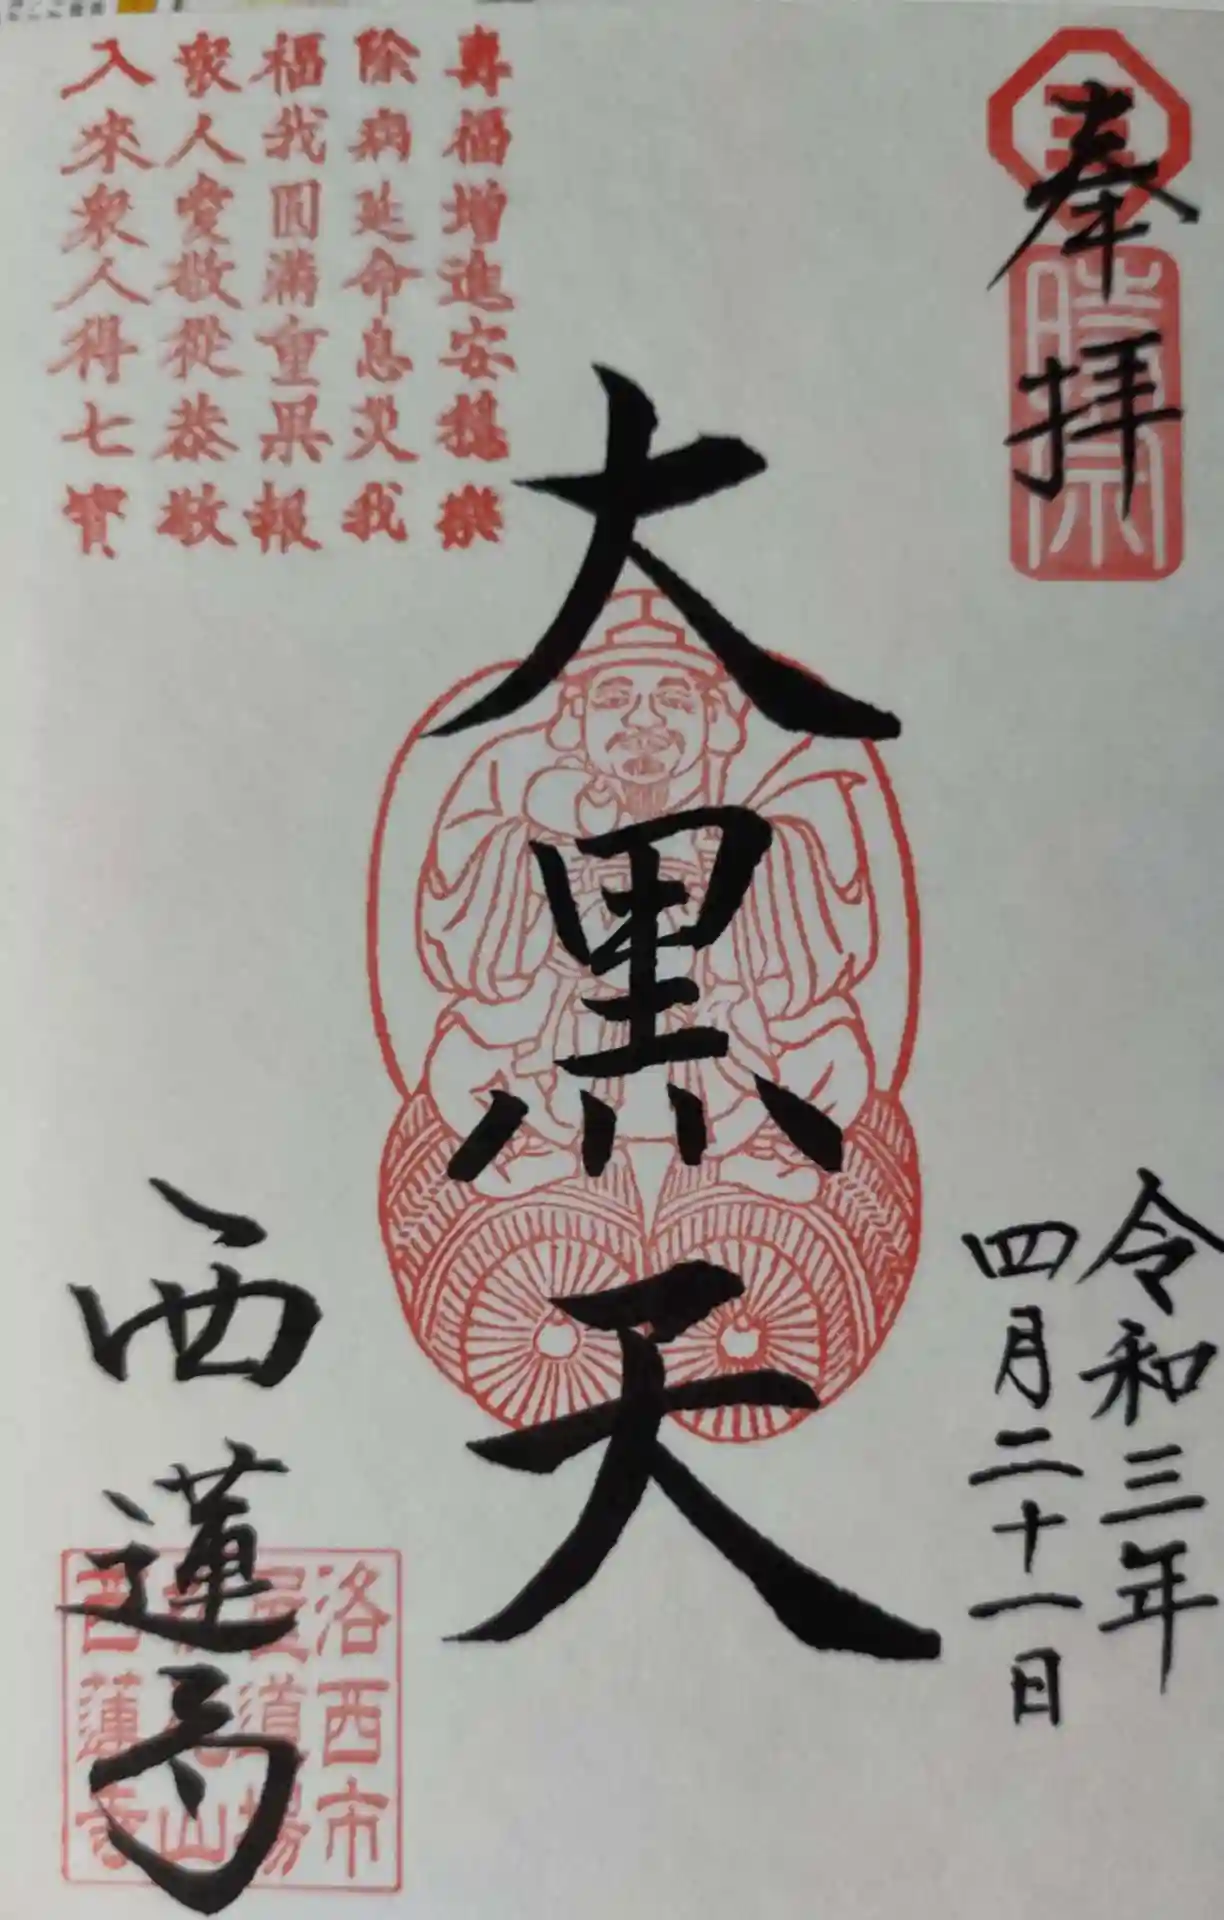 奉拝
令和三年
四月二十一日
大黒天
壽福增進安穩樂
除病延命息災我
福我圓滿重果報
衆人愛敬從恭敬
入來衆人得七寶
西蓮寺
洛西市
道場
山
西蓮寺